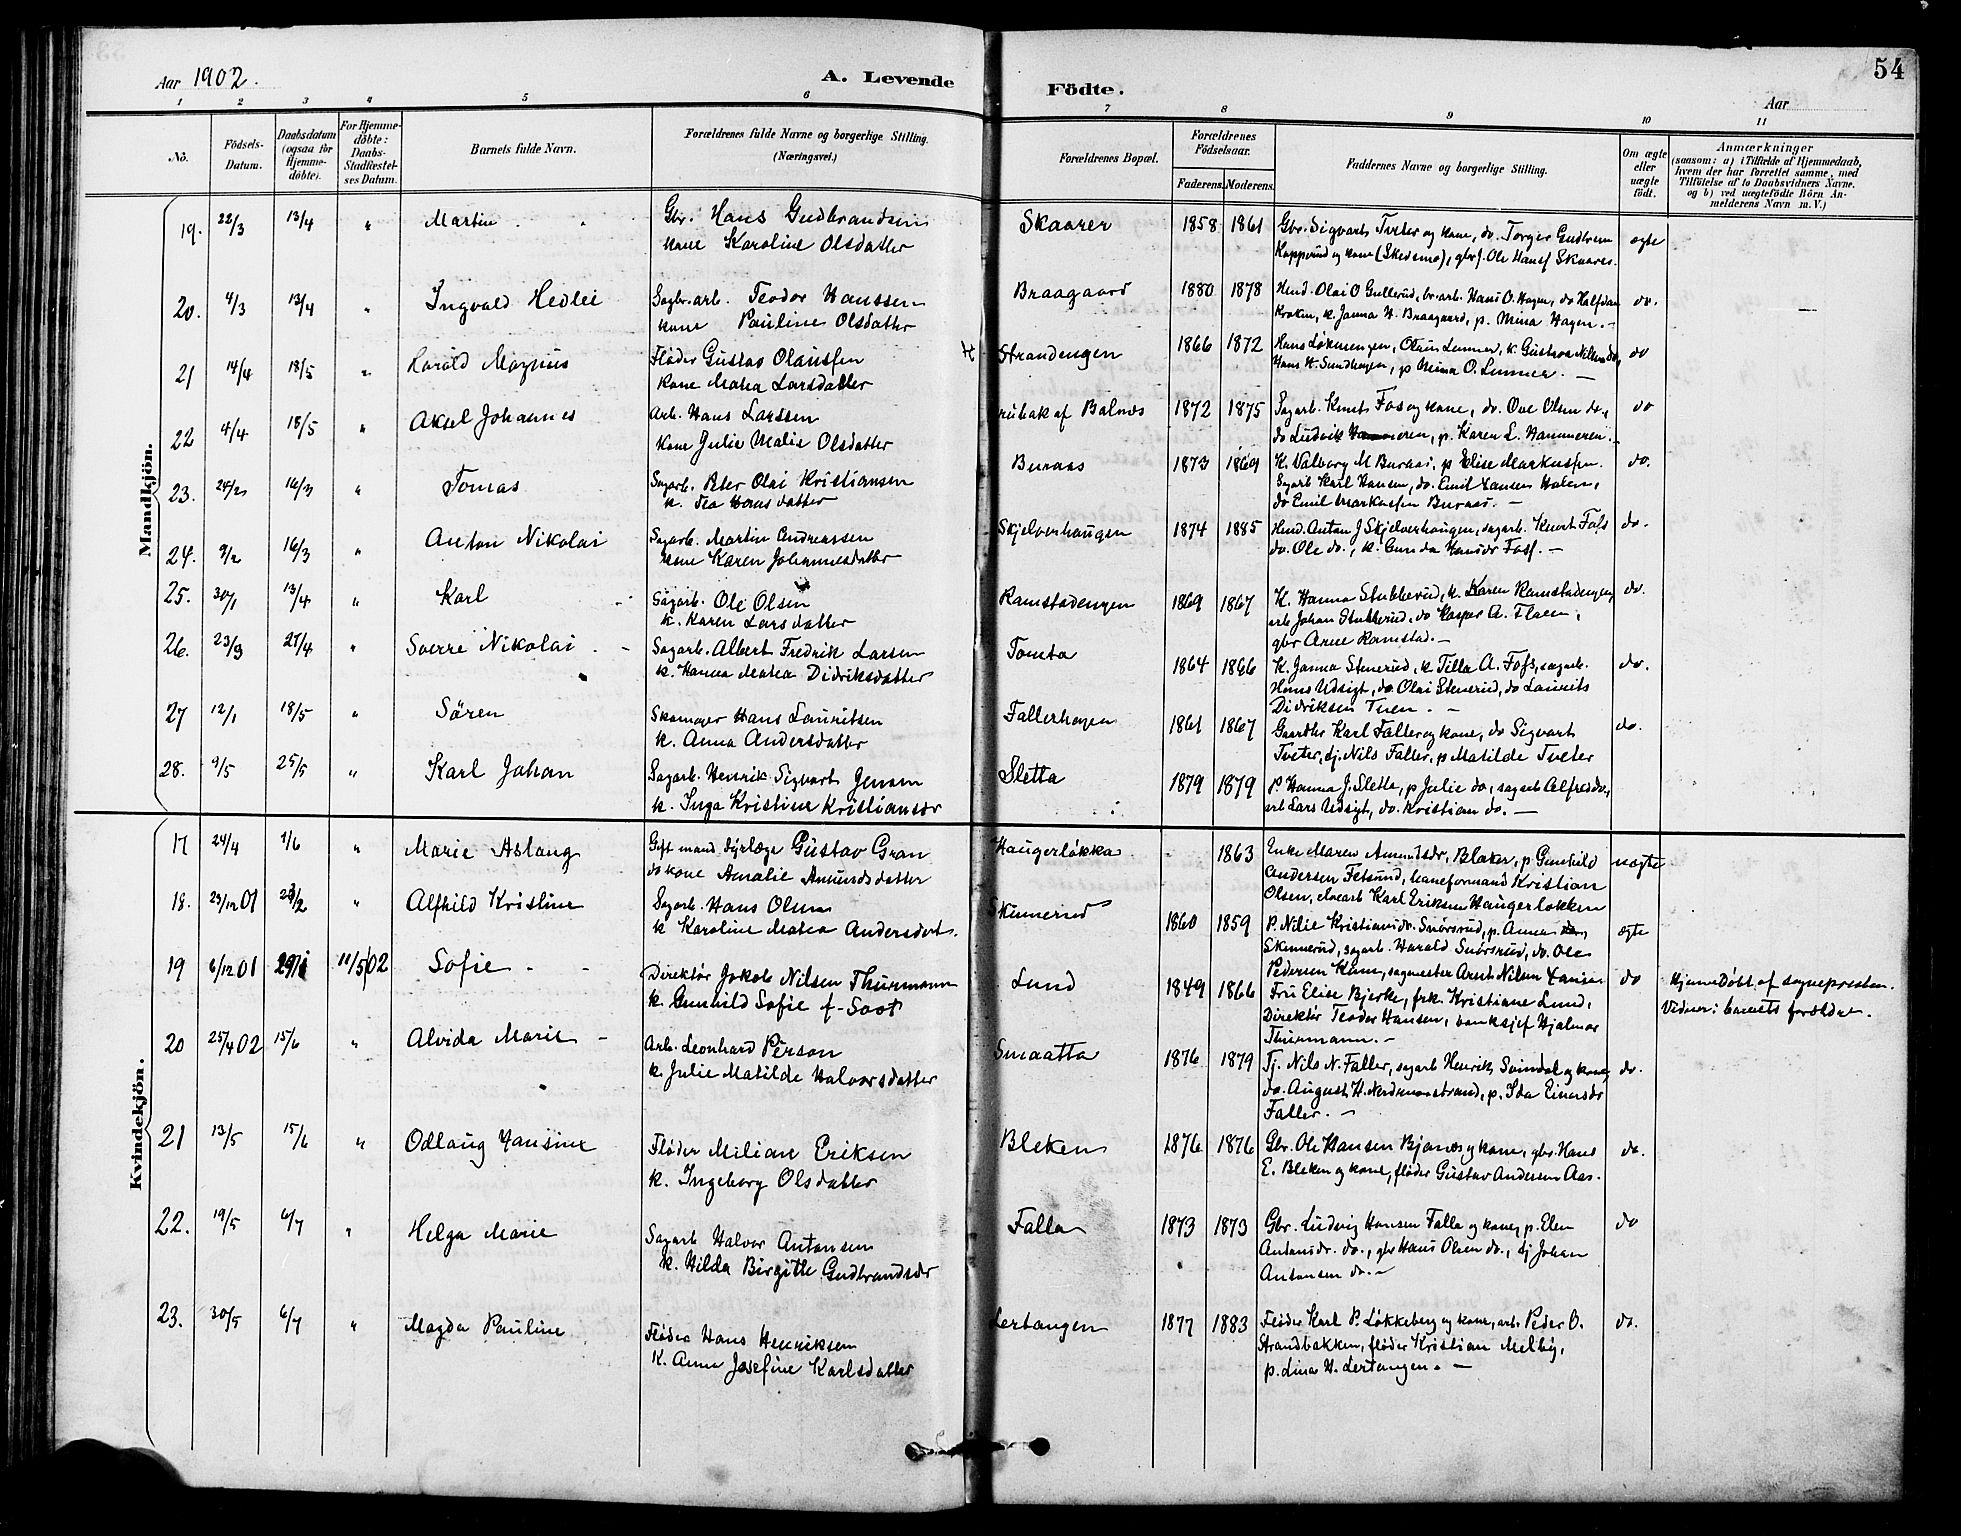 54
Aar 1902.
A. Levende
Födte.
Aar
1 2 3 4 5 6 7 8 9 10 11
No.
Födsels-Datum.
Daabsdatum (ogsaa for Hjemme-döbte).
For Hjemme-döbte: Daabs-Stadfæstel-ses Datum.
Barnets fulde Navn.
Forældrenes fulde Navne og borgerlige Stilling. (Næringsvei.)
Forældrenes Bopæl.
Forældrenes Födselsaar.
Faderens. Moderens.
Faddernes Navne og borgerlige Stilling.
Om ægte eller uægte födt.
Anmærkninger
(saasom: a) i Tilfælde af Hjemmedaab,
hvem der har forrettet samme, med
Tilföielse af to Daabsvidners Navne.
og b) ved uægtefödte Börn An-
melderens Navn m. V.)
Mandkjön.
19. 22/3 13/4 " Martin Gbr. Hans Gudbrandsen Skaarer 1858 1861 Gbr. Sigvart Tveter og kone, do. Torger Gudbrem ægte
kone Karoline Olsdatter Kopperud og kone (Skedsmo), gbrs. Ole Hansf Skaarer.
20. 4/3 13/4 " Ingvald Hedlei Sagbr.arb. Teodor Hanssen Braagaard 1880 1878 Hmd. Olai O Gullerud, br.arb. Hans O. Hagen, do Halfdan do.
kone Pauline Olsdatter Kroken, k. Janna H. Braagaard, p. Mina Hagen. —
21 14/4 18/5 " Harald Magnus Fløder Gustav Olaussen Strandengen 1866 1872 do
kone Matea Larsdatter Hans H. Sundhagen, p Mina O. Lunner. —
22 4/4 18/5 " Aksel Johannes Arb. Hans Larssen af Balnes 1872 1875 Sagarb. Knut Foss og kone, do. Ove Olsen do., do
kone Julie Malie Olsdatter do Ludvik Hammeren, p. Karen L. Hammeren. —
23. 24/2 16/3 " Tomas Sagarb. Peter Olai Kristiansen Buraas 1873 1869 K. Valborg M Buraas, p Elise Markussen. do.
k. Tea Hansdatter Sagarb Karl Hansen, do. Emil Hansen Holen,
do Emil Markussen Buraas. —
24. 9/2 16/3 " Anton Nikolai Sagarb. Martin Andreassen Skjelverhaugen 1874 1885 Hmd. Anton J Skjelverhaugen, sagarb. Knut Foss do.
kone Karen Johannesdatter do. Ole do., k. Gunda Hansdr Foss. —
25. 30/1 13/4 " Karl Sagarb. Ole Olsen Ramstadengen 1869 1867 K. Hanna Stubberud, k. Karen Ramstadengen, do.
k. Karen Larsdatter arb Johan Stubberud, do Kasper A. Flaen,
gbr Arne Ramstad. —
26. 23/3 27/4 " Sverre Nikolai Sagarb. Albert Fredrik Larsen Tomta 1864 1866 K. Janna Stenerud, k Tilla A. Foss, sagarb. do.
k. Hanna Matea Didriksdatter Hans Udsigt, do. Olai Stenerud, do Laurits
Didriksen Tuen. —
27 12/1 18/5 " Sören Skomager Hans Lauritsen Fallerhagen 1861 1867 Gaardbr Karl Faller og kone, do Sigvart do.
k. Anna Andersdatter Tveter, tj. Nils Faller, p Matilde Tveter
28. 9/5 25/5 " Karl Johan Sagarb. Henrik Sigvart Jensen Sletta 1879 1879 P. Hanna J. Sletta, p Julie do, sagarb Alfred do.,
k. Inga Kristine Kristiansdr arb Lars Udsigt, do. Kristian do. —
Kvindekjön.
17 24/4 1/6 " Marie Aslaug Gift mand dyrlæge Gustav Gran Haugerløkka 1863 Enke Maren Amundsdr, Blaker, p. Gunhild uægte
do kone Amalie Amundsdatter Andersen Fetsund, baneformand Kristian
Olsen, elvearb Karl Eriksen Haugerløkken
18. 29/12 01 2/2 " Alfhild Kristine Sagarb. Hans Olsen Skinnerud 1860 1859 P. Nilie Kristiansdr. Snörsrud, p. Anna ægte
k Karoline Matea Andersdat. Skinnerud, sagarb. Harald Snörsrud, do. Ole
Pedersen Kam, sagmester Arnt Nilsen
19 6/12 01 11/5 02 Sofie Direktör Jakob Nilsen Thurmann Lund 1849 1866 Fru Elise Bjerke, frk. Kristiane Lund, do Hjemmedöbt af sognepresten.
k. Gunhild Sofie f. Soot Direktör Teodor Hansen, banksjef Hjalmar Vidner: barnets forældre.
Thurmann. —
20 25/4 02 15/6 " Alvida Marie Arb. Leonhard Person Smaatta 1876 1879 Tj. Nils N. Faller, sagarb Henrik Svindal og kone, do.
k. Julie Matilde Halvorsdatter do. August H. Nordmanstrand, p. Ida Einarsdr
Faller. —
21 13/5 15/6 " Odlaug Jansine Fløder Milian Eriksen Bleken 1876 1876 Gbr. Ole Hansen Bjanes og kone, gbr. Hans do.
k. Ingeborg Olsdatter E. Bleken og kone, fløder Gustav Andersen Aas.
22. 19/5 6/7 " Helga Marie Sagarb Halvor Antonsen Falla 1873 1873 Gbr. Ludvig Hansen Falla og kone, p. Elen do
k. Hilda Birgitte Gudbrandsdr Antonsdr. do., gbr Hans Olsen do., tj Johan
Antonsen do. —
23. 30/5 6/7 " Magda Pauline Fløder Hans Henriksen Lertangen 1877 1883 Fløder Karl P. Løkkeberg og kone, arb. Peder O. do.
K. Anna Josefine Karlsdatter Strandbakken, fløder Kristian Melby,
p. Lina H. Lertangen. —